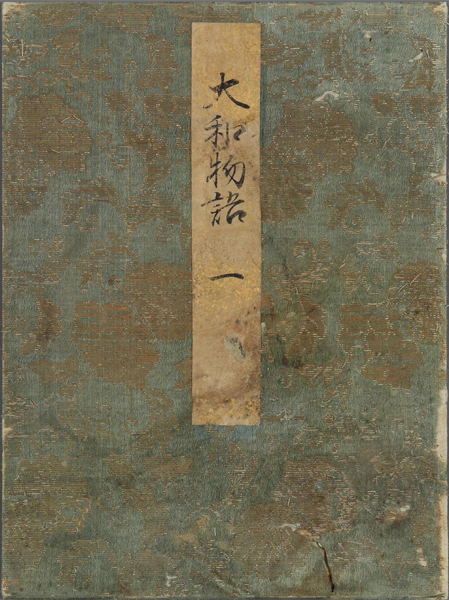 大和物語 一